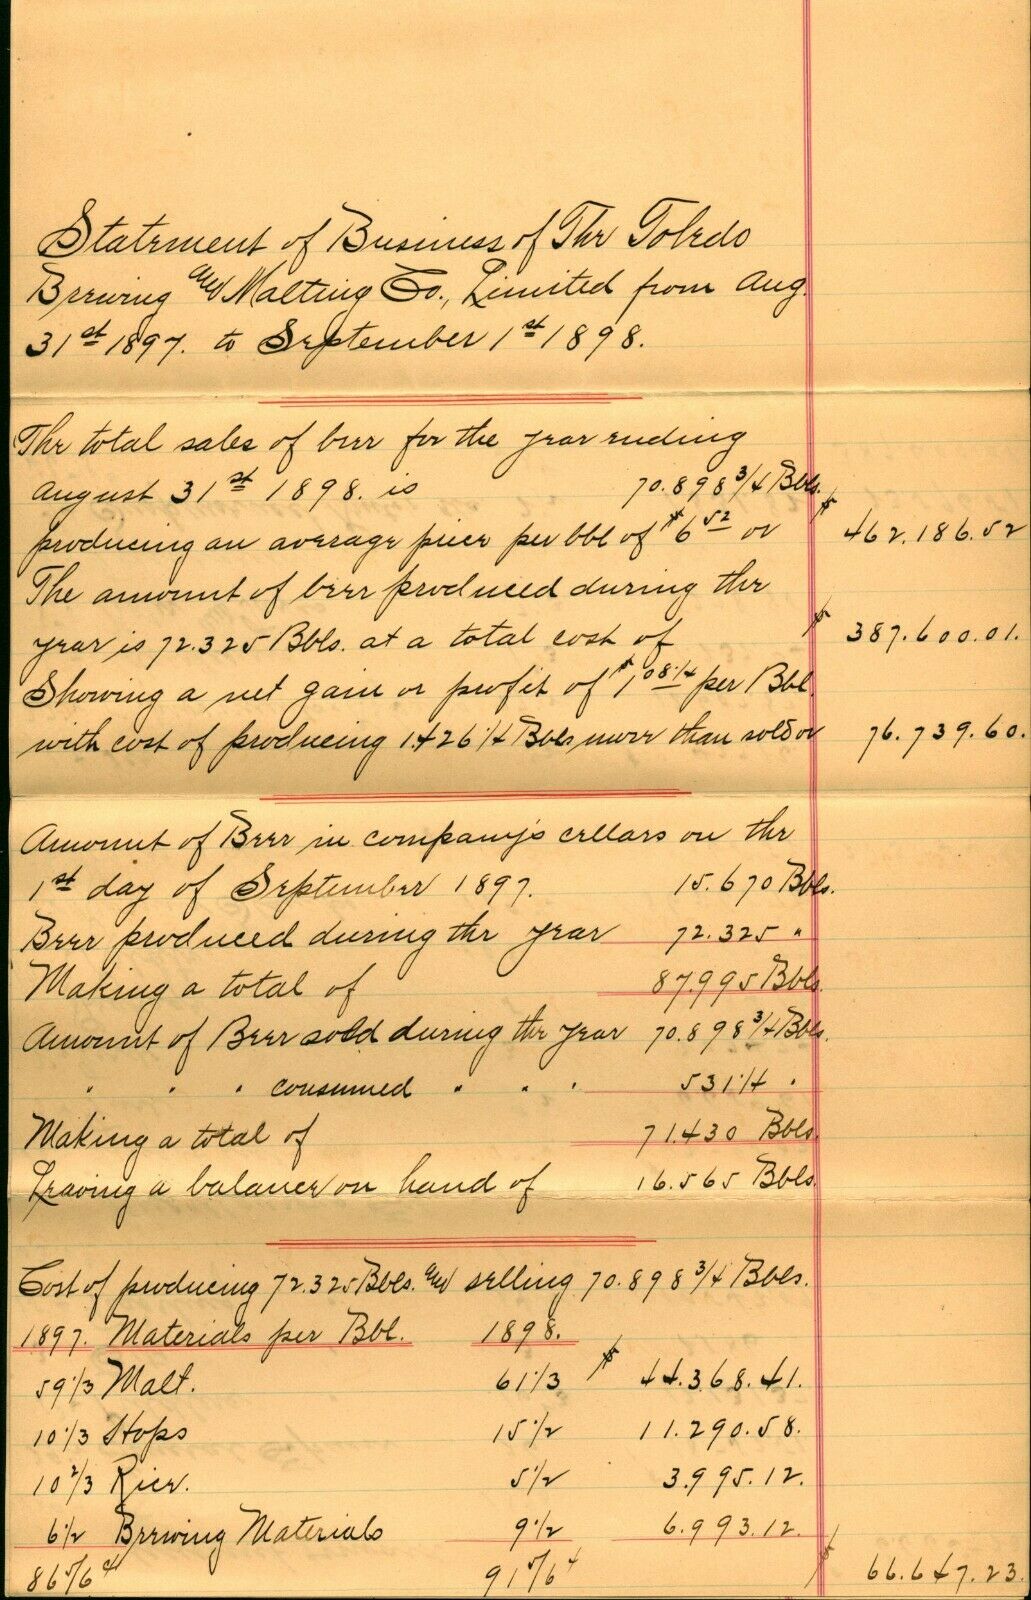 Statement of Business of The Toledo
Brewing and Malting Co., Limited from Aug.
31st 1897. to September 1st 1898.
The total sales of beer for the year ending
August 31st 1898. is 70.898 3/4 Bbls.
producing an average price per bbl of $6 52 or $ 462.186.52
The amount of beer produced during the
year is 72.325 Bbls. at a total cost of $ 387.600.01.
Showing a net gain or profit of $1 08 1/4 per Bbl.
with cost of producing 1.426 1/4 Bbls more than sold or 76.739.60.
Amount of Beer in company's cellars on the
1st day of September 1897. 15.670 Bbls.
Beer produced during the year 72.325 "
Making a total of 87.995 Bbls.
Amount of Beer sold during the year 70.898 3/4 Bbls.
" " " consumed " " " 531 1/4 "
Making a total of 71.430 Bbls.
Leaving a balance on hand of 16.565 Bbls.
Cost of producing 72.325 Bbls. and selling 70.898 3/4 Bbls.
1897. Materials per Bbl. 1898.
59 1/3 Malt. 61 1/3 $ 44.368.41.
10 1/3 Hops 15 1/2 11.290.58.
10 2/3 Rice. 5 1/2 3.995.12.
6 1/2 Brewing Materials 9 1/2 6.993.12.
86 5/6 ¢ 91 5/6 ¢ $ 66.647.23.